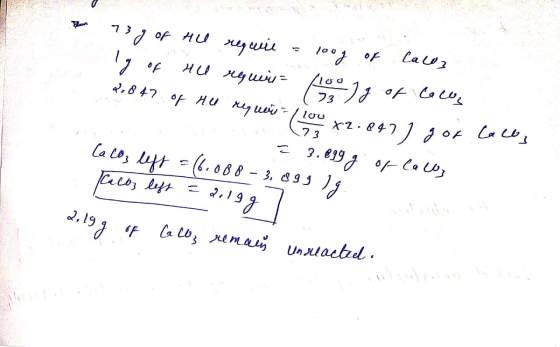 73 g of HCl require = 100g of CaCO3
1g of HCl require = (100/73) g of CaCO3
2.847 of HCl require = (100/73 x 2.847) g of CaCO3
= 3.899 g of CaCO3
CaCO3 left = (6.088 - 3.899) g
CaCO3 left = 2.19 g
2.19 g of CaCO3 remain unreacted.